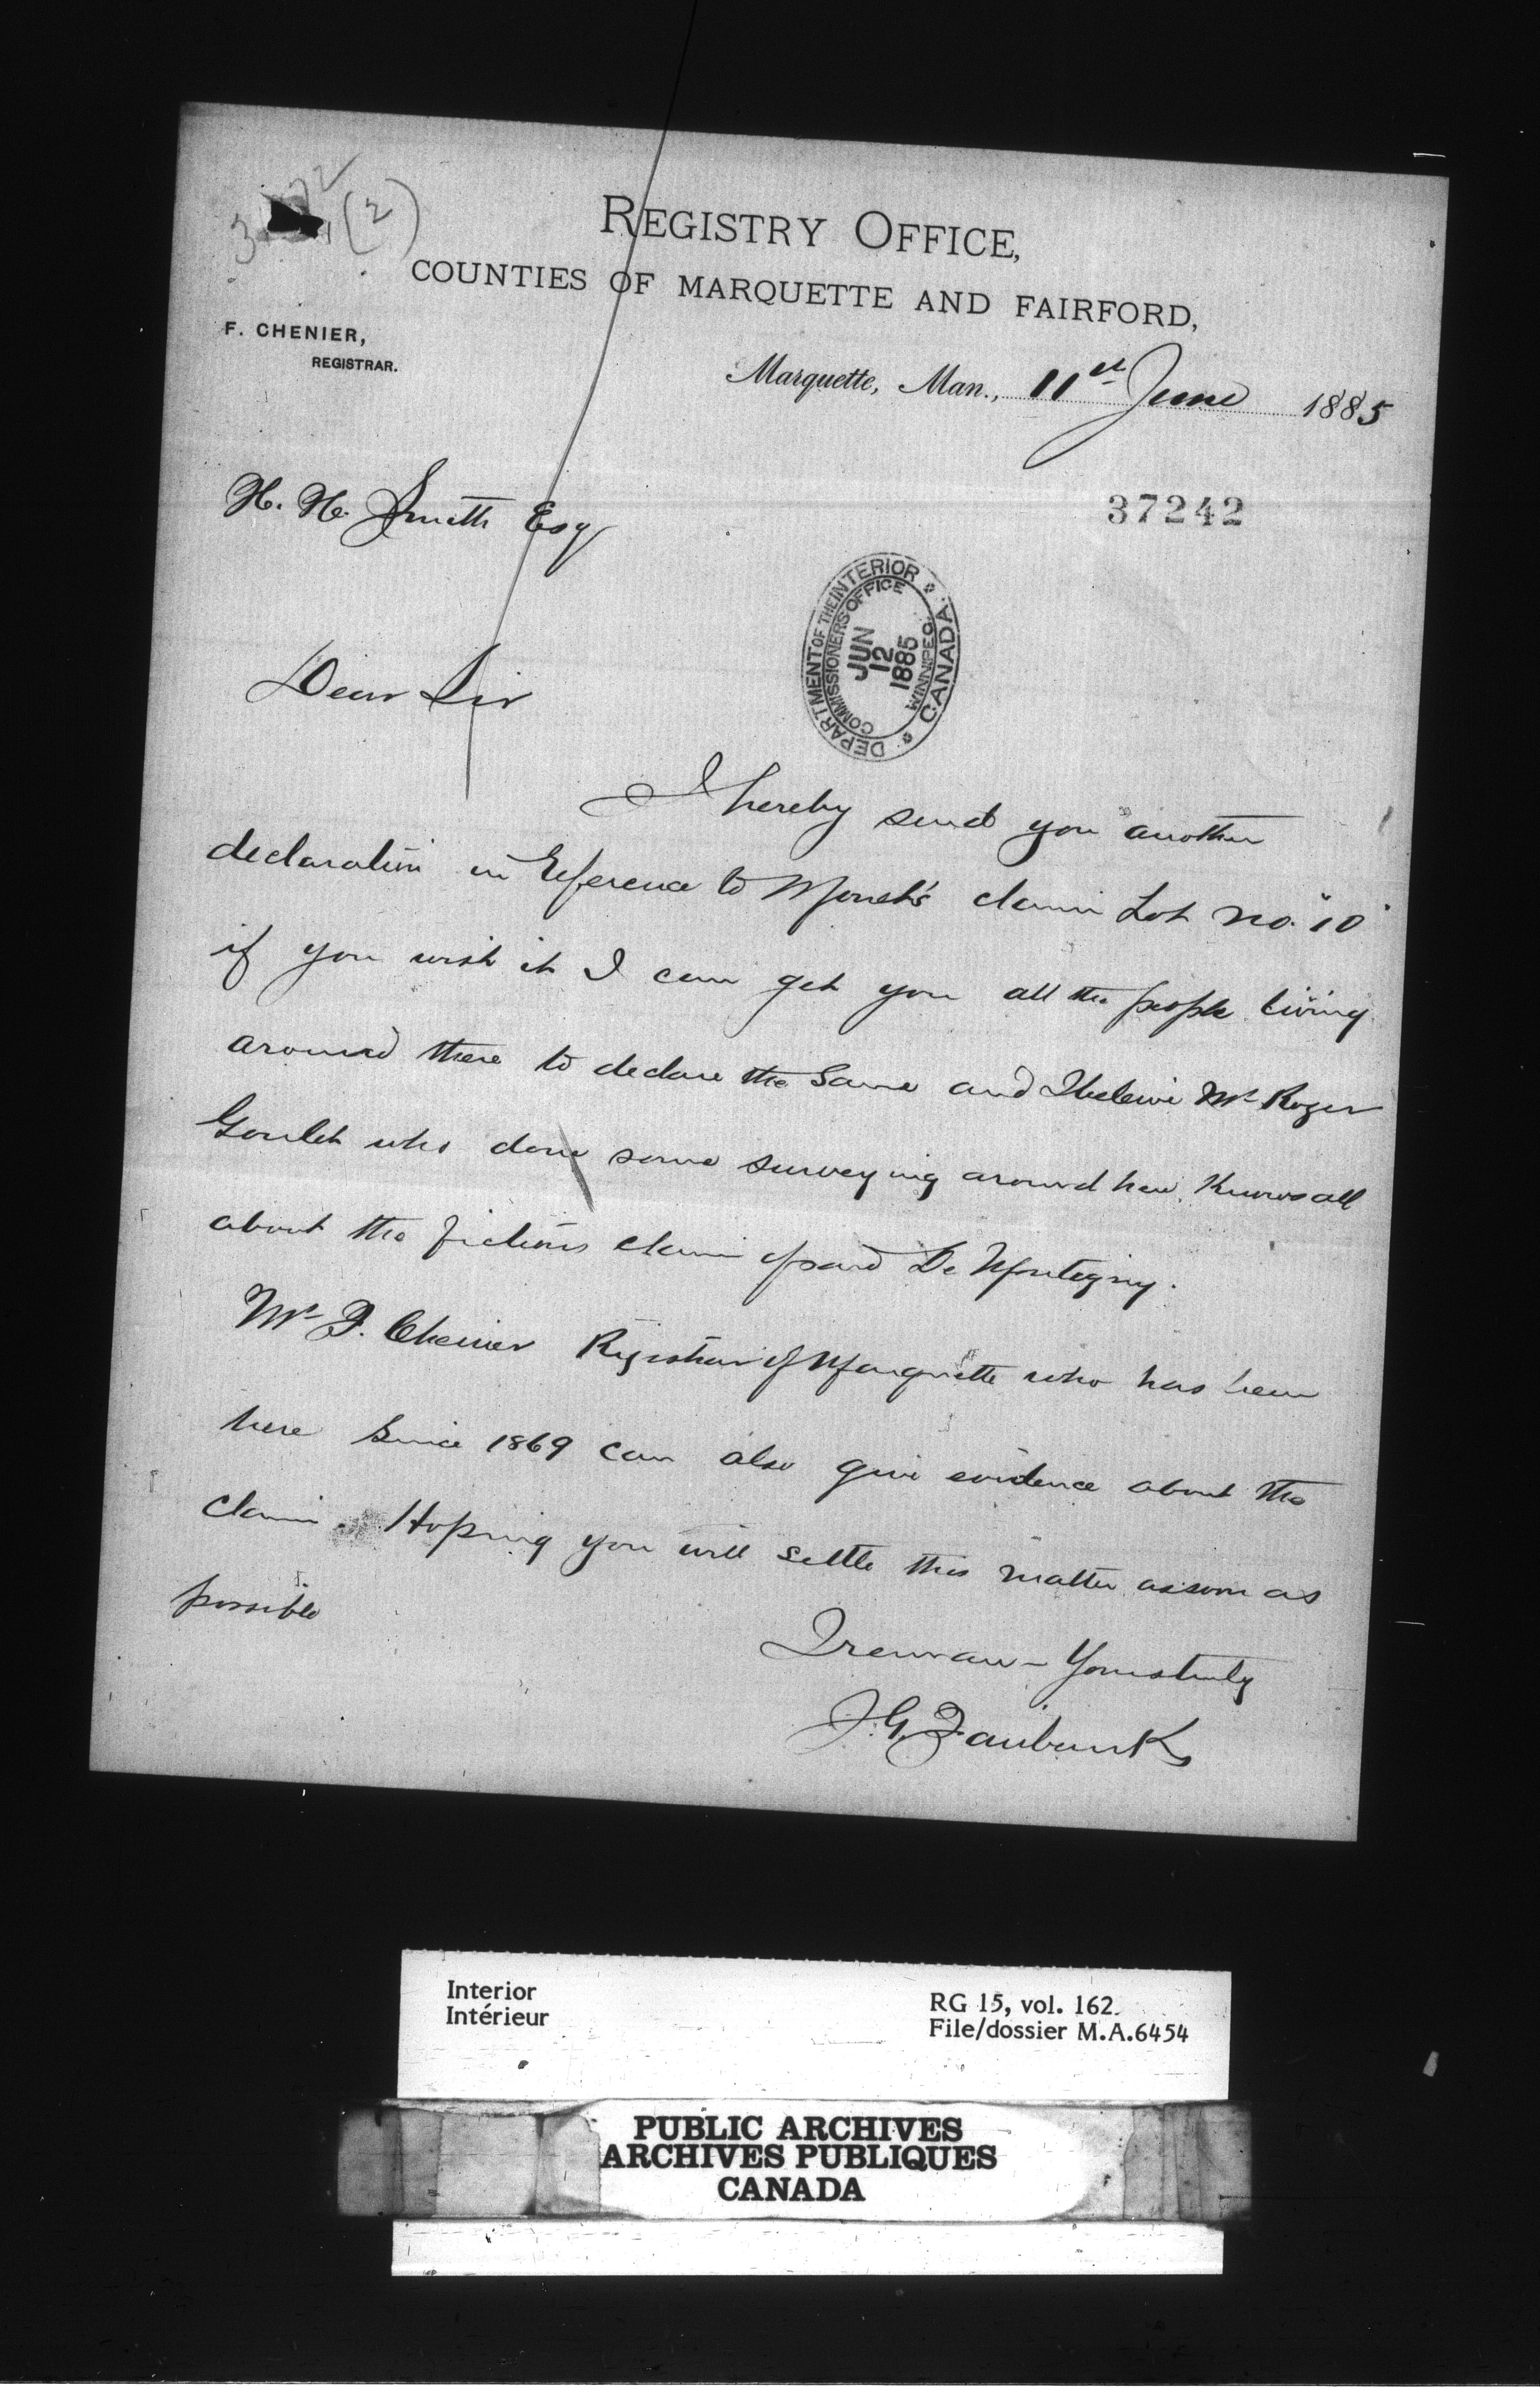 (2)
REGISTRY OFFICE,
COUNTIES OF MARQUETTE AND FAIRFORD,
F. CHENIER,
REGISTRAR.
Marquette, Man., 11st June 1885
H. H. Smith Esq
37242
DEPARTMENT OF THE INTERIOR
COMMISSIONERS OFFICE
JUN
12
1885
WINNIPEG.
CANADA
Dear Sir
I hereby send you another
declaration in Reference to claim Lot No. "10"
if you wish it I can get you all the people living
around there to declare the same and I beleive Mr Roger
Goulet who done some surveying around here Knows all
about the fictious claim of said De Montigny.
Mr F. Chenier Registrar of Marquette who has been
here Since 1869 can also give evidence about the
claim. Hoping you will settle this matter as soon as
possible
I remain Yours truly
J. G. Fairbanks
Interior
Intérieur
RG 15, vol. 162
File/dossier M.A.6454
PUBLIC ARCHIVES
ARCHIVES PUBLIQUES
CANADA